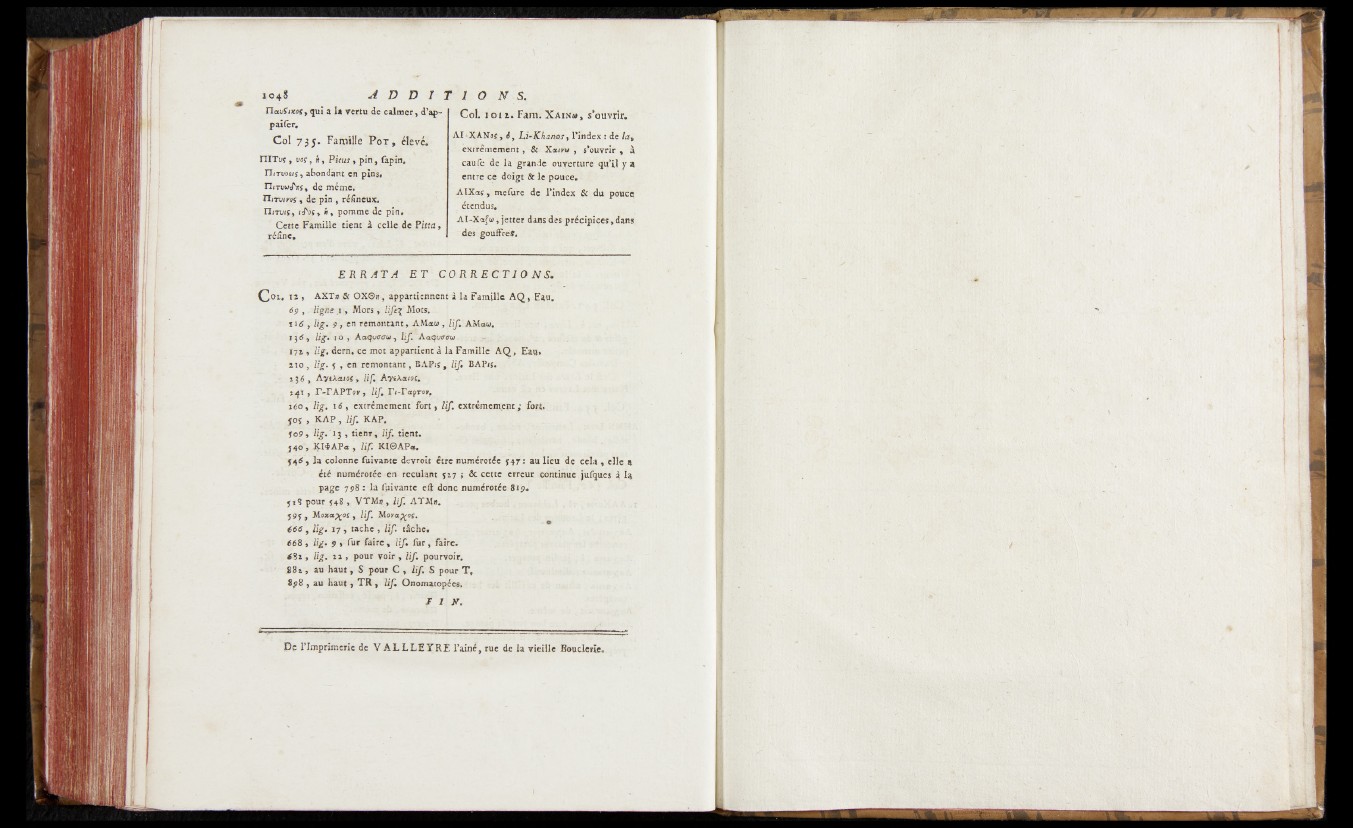 1048 ADDITIONS.
Παυσικος, qui a la vertu de calmer, d'ap-
paiſer.
Col 735. Famille POT, élevé.
ΠΙΤυς, υος, ἡ, Pitus, pin, ſapin.
Πιτυους, abondant en pins.
Πιτυωδης, de même.
Πιτυινος, de pin, réſineux.
Πιτυις, ιδος, ἡ, pomme de pin.
Cette Famille tient à celle de Pitta,
réſine.
Col. 1012. Fam. ΧΑΙΝω, s'ouvrir.
ΛΙ-ΧΑΝος, ὁ, Li-Khanos, l'index : de la,
extrêmement, & Χαινω, s'ouvrir, à
cauſe de la grande ouverture qu'il y a
entre ce doigt & le pouce.
ΛΙΧας, meſure de l'index & du pouce
étendus.
ΛΙ-Χαζω, jetter dans des précipices, dans
des gouffres.
ERRATA ET CORRECTIONS.
COL. 12, ΑΧΤη & ΟΧΘη, appartiennent à la Famille AQ, Eau.
69, ligne 1, Mors, liſez Mots.
116, lig. 9, en remontant, ΛΜαω, liſ. ΑΜαω.
136, lig. 10, Λαφυσσω, liſ. Λαφυσσω
172, lig. dern. ce mot appartient à la Famille AQ, Eau.
210, lig. 5, en remontant, ΒΑΡις, liſ. ΒΑΡις.
236, Αγελαιος, liſ. Αγελαιος.
241, Γ-ΓΑΡΤον, liſ. Γι-Γαρτον.
260, lig. 16, extrêmement fort, liſ. extrêmement; fort.
505, ΚΑΡ, liſ. ΚΑΡ.
509, lig. 13, tienr, liſ. tient.
540, ΚΙΦΑΡα, liſ. ΚΙΘΑΡα.
546, la colonne ſuivante devroit être numérotée 547 : au lieu de cela, elle a
été numérotée en reculant 527 ; & cette erreur continue juſques à la
page 798 : la ſuivante eſt donc numérotée 819.
528 pour 548, VTMη, liſ. ΑΤΜη.
595, Μοκαχος, liſ. Μοναχος.
666, lig. 17, tache, liſ. tâche.
668, lig. 9, ſur faire, liſ. ſur, faire.
682, lig. 22, pour voir, liſ. pourvoir.
882, au haut, S pour C, liſ. S pour T,
898, au haut, TR, liſ. Onomatopées.
FIN.
De l'Imprimerie de VALLLEYRE l'aîné, rue de la vieille Bouclerie.